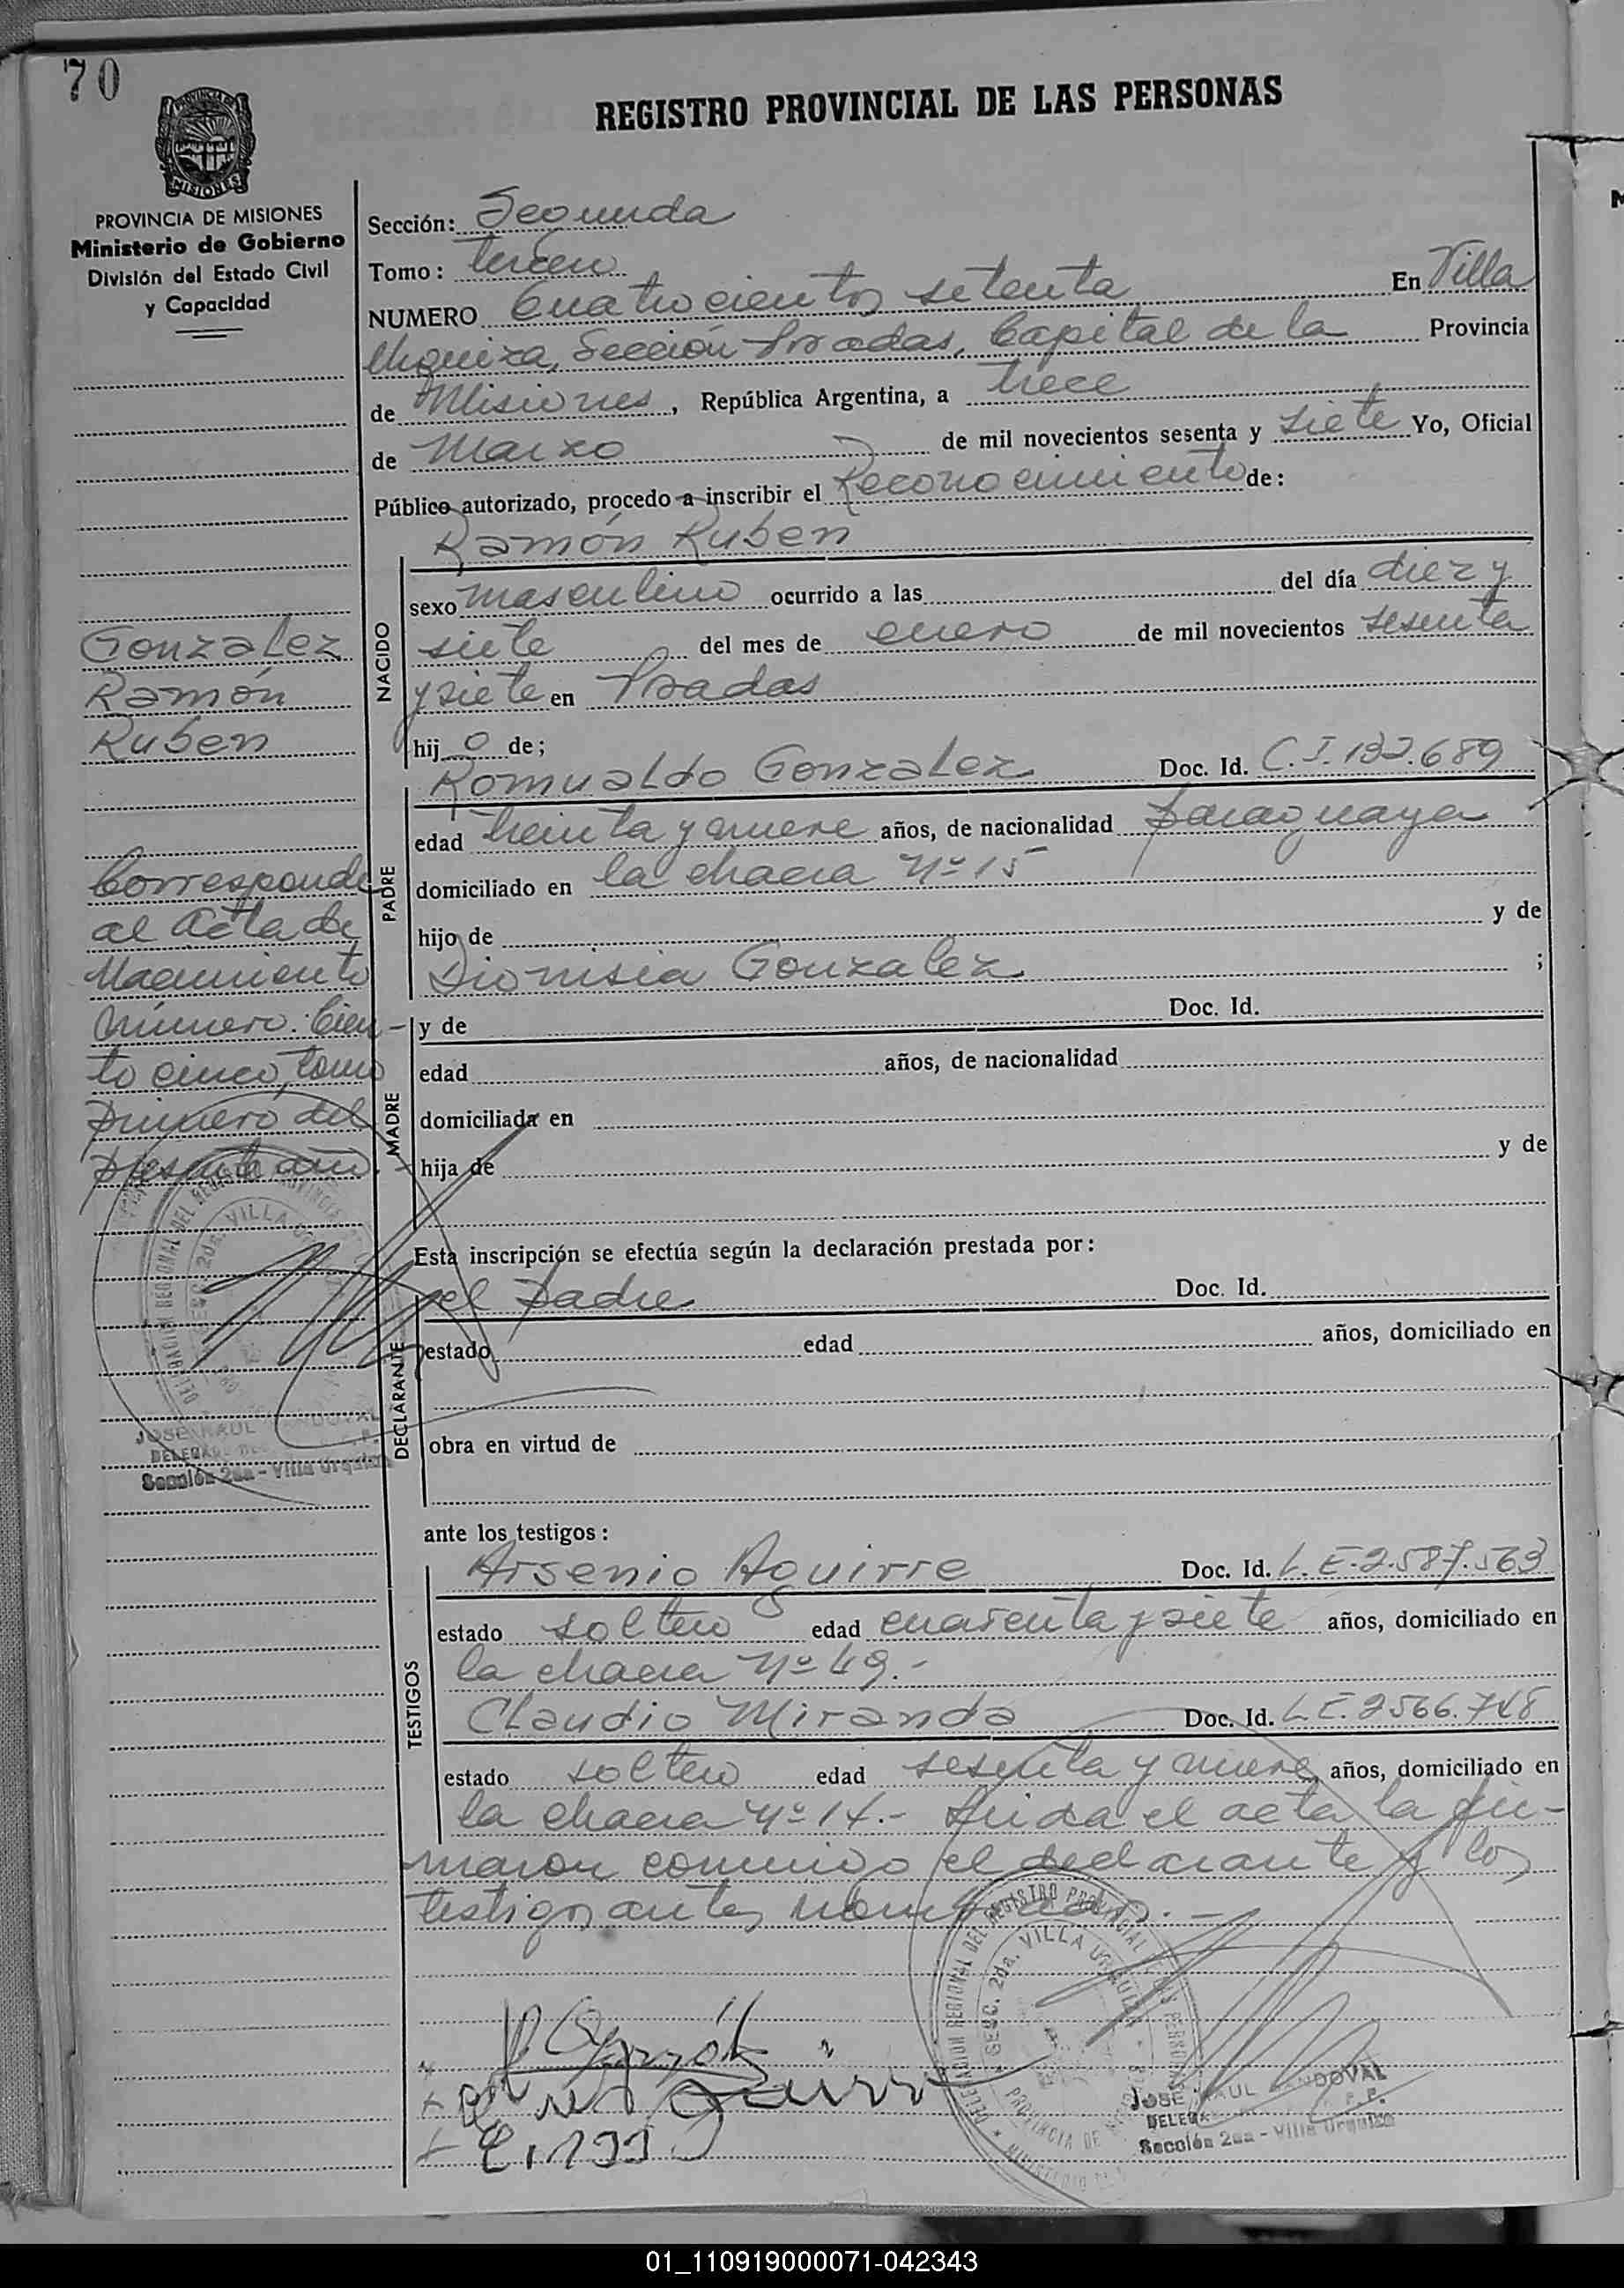 70
REGISTRO PROVINCIAL DE LAS PERSONAS
PROVINCIA DE MISIONES
Ministerio de Gobierno
División del Estado Civil
y Capacidad
Sección: Segunda
Tomo: tercero
NUMERO Cuatrocientos setenta En Villa
Urquiza, Sección Posadas, Capital de la Provincia
de Misiones, República Argentina, a trece
de Marzo de mil novecientos sesenta y siete Yo, Oficial
Público autorizado, procedo a inscribir el Reconocimiento de:
Ramón Ruben
NACIDO
sexo masculino ocurrido a las del día diez y
siete del mes de enero de mil novecientos sesenta
y siete en Posadas
hij o de;
Gonzalez
Ramón
Ruben
Romualdo Gonzalez Doc. Id. C.I. 132.689
PADRE
edad treinta y nueve años, de nacionalidad paraguaya
domiciliado en la chacra Nº 15
hijo de y de
Dionisia Gonzalez ;
Corresponde
al acta de
Nacimiento
número: Cien-
to cinco, tomo
primero del
presente año.
MADRE
y de Doc. Id.
edad años, de nacionalidad
domiciliada en
hija de y de
Esta inscripción se efectúa según la declaración prestada por:
DECLARANTE
el padre Doc. Id.
estado edad años, domiciliado en
obra en virtud de
DELEGACION REGIONAL DEL REGISTRO PROVINCIAL
SECC. 2da. VILLA
JOSE RAUL SANDOVAL
Sección 2da - Villa Urquiza
ante los testigos:
TESTIGOS
Arsenio Aguirre Doc. Id. L.E. 2.587.563
estado soltero edad cuarenta y siete años, domiciliado en
la chacra Nº 49.-
Claudio Miranda Doc. Id. L.E. 2566.748
estado soltero edad sesenta y nueve años, domiciliado en
la chacra Nº 14.- Leida el acta la fir-
maron conmigo el declarante y los
testigos antes nombrados.-
DELEGACION REGIONAL DEL REGISTRO PROVINCIAL DE LAS PERSONAS
SECC. 2da. VILLA URQUIZA
PROVINCIA DE
JOSE RAUL SANDOVAL
Sección 2da - Villa Urquiza
01_110919000071-042343